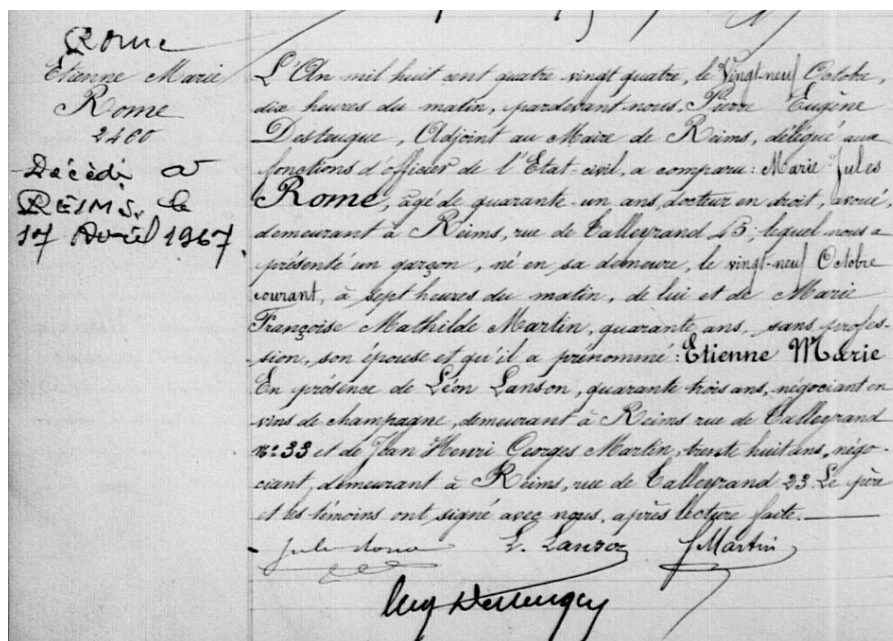 Rome
Etienne Marie
Rome
2460
Décédé à
REIMS, le
17 Avril 1967.
L'An mil huit cent quatre vingt quatre, le Vingt-neuf Octobre,
dix heures du matin, pardevant nous, Pierre Eugène
Desteuque, Adjoint au Maire de Reims, délégué aux
fonctions d'officier de l'Etat-civil, a comparu: Marie Jules
Rome, âgé de quarante un ans, docteur en droit, avoué,
demeurant à Reims, rue de Talleyrand; lequel nous a
présenté un garçon, né en sa demeure, le vingt-neuf Octobre
courant, à sept heures du matin, de lui et de Marie
Françoise Mathilde Martin, quarante ans, sans profes-
sion, son épouse et qu'il a prénommé: Etienne Marie
En présence de Léon Lanson, quarante trois ans, négociant en
vins de champagne, demeurant à Reims rue de Talleyrand
No 33 et de Jean Henri Georges Martin, trente huit ans, négo-
ciant, demeurant à Reims, rue de Talleyrand 23. Le père
et les témoins ont signé avec nous, après lecture faite.
Jules Rome L. Lanson J Martin